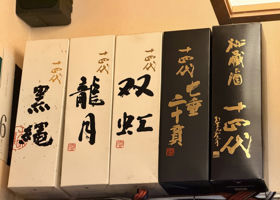 十四代
黒縄
十四代
龍月
十四代
双虹
十四代
七垂
二十貫
秘蔵酒
十四代